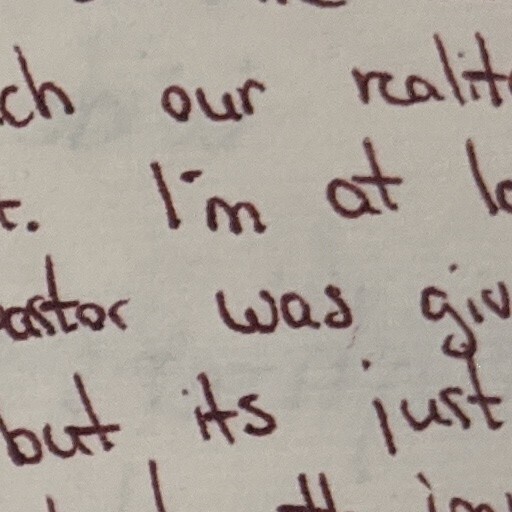 ch our realit
I'm at
astor was giv
but its just